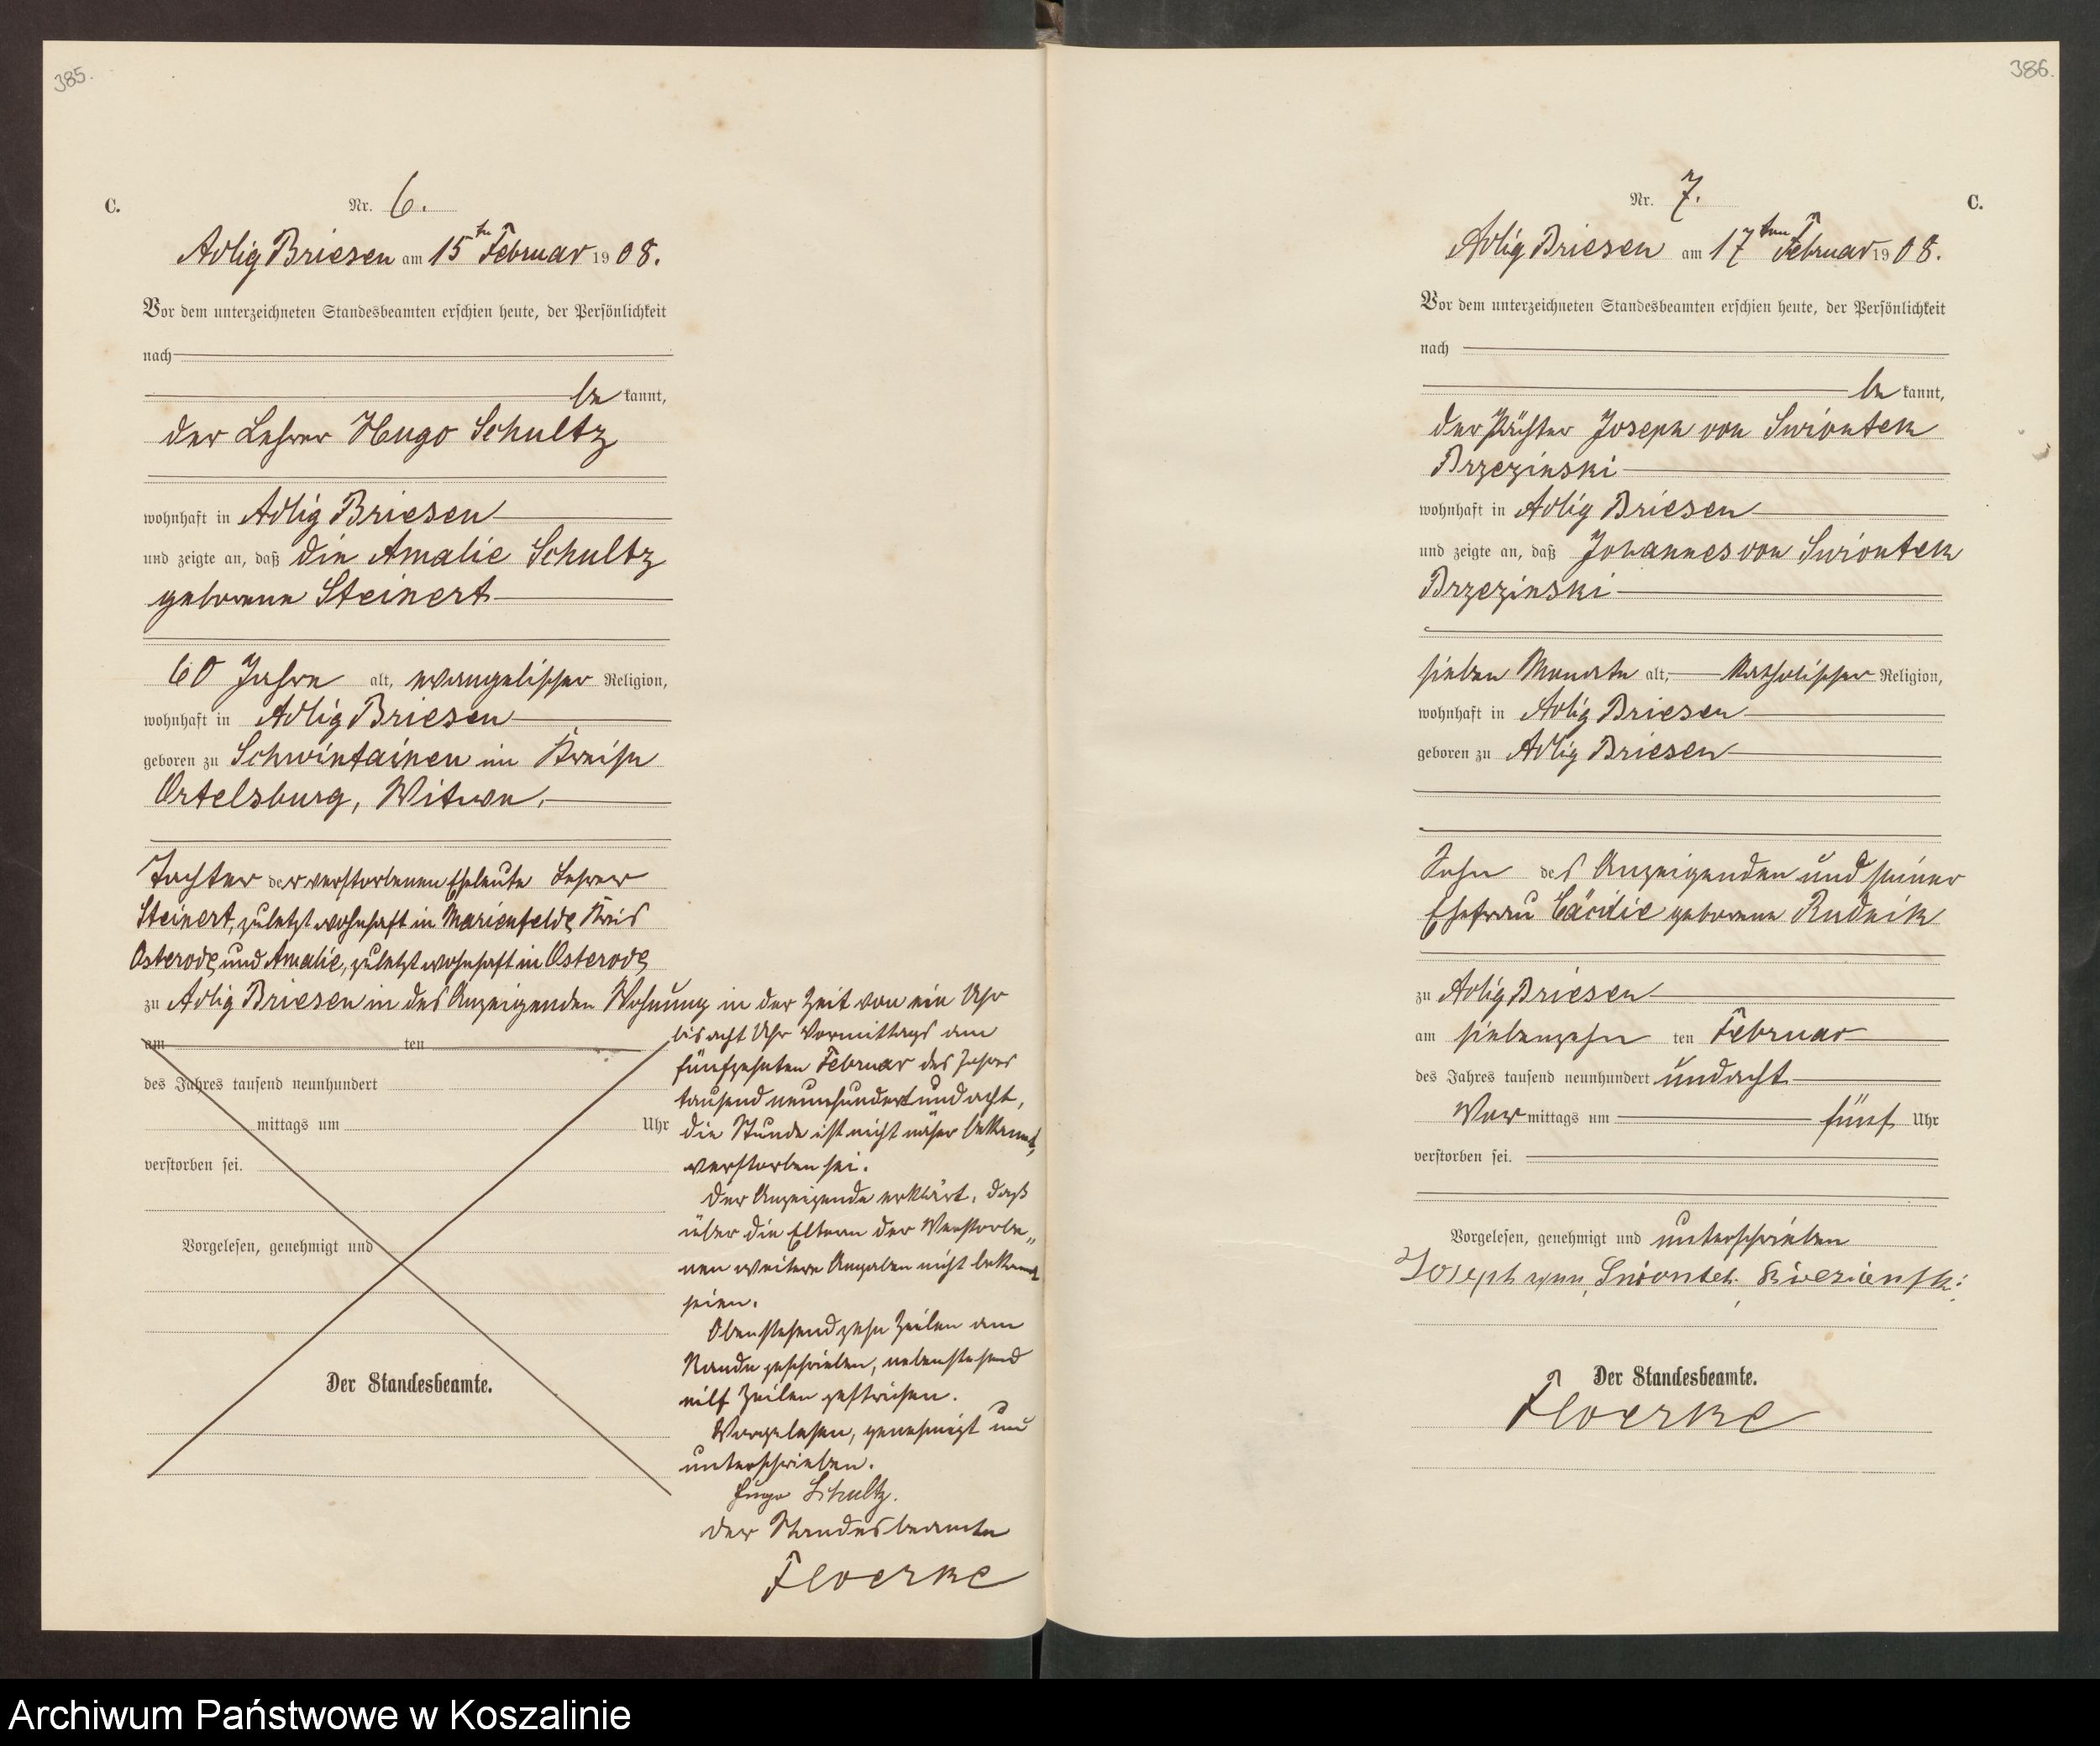 385.
C.
Nr. 6.
Adlig Briesen am 15ten Februar 1908.
Vor dem unterzeichneten Standesbeamten erschien heute, der Persönlichkeit
nach
be kannt,
der Lehrer Hugo Schultz
wohnhaft in Adlig Briesen
und zeigte an, daß die Amalie Schultz
geborene Steinert
60 Jahre alt, evangelischer Religion,
wohnhaft in Adlig Briesen
geboren zu Schwintainen im Kreise
Ortelsburg, Witwe,
Tochter der verstorbenen Eheleute Lehrer
Steinert, zuletzt wohnhaft in Marienfelde, Kreis
Osterode, und Amalie, zuletzt wohnhaft in Osterode,
zu Adlig Briesen in des Anzeigenden Wohnung in der Zeit von ein Uhr
bis acht Uhr Vormittags am
fünfzehnten Februar des Jahres
tausend neunhundert und acht,
die Stunde ist nicht näher bekannt,
verstorben sei.
Der Anzeigende erklärt, daß
über die Eltern der Verstorbe„
nen weitere Angaben nicht bekannt
seien.
Obenstehend zehn Zeilen am
Rande geschrieben, nebenstehend
eilf Zeilen gestrichen.
Vorgelesen, genehmigt und
unterschrieben.
Hugo Schultz.
Der Standesbeamte
Floerke
am ten
des Jahres tausend neunhundert
mittags um Uhr
verstorben sei.
Vorgelesen, genehmigt und
Der Standesbeamte.
386.
Nr. 7.
C.
Adlig Briesen am 17ten Februar 1908.
Vor dem unterzeichneten Standesbeamten erschien heute, der Persönlichkeit
nach
be kannt,
der Pächter Joseph von Swiontek
Brzezinski
wohnhaft in Adlig Briesen
und zeigte an, daß Johannes von Swiontek
Brzezinski
sieben Monate alt, katholischer Religion,
wohnhaft in Adlig Briesen
geboren zu Adlig Briesen
Sohn des Anzeigenden und seiner
Ehefrau Cäcilie geborene Rudnik
zu Adlig Briesen
am siebenzehn ten Februar
des Jahres tausend neunhundert und acht
Vor mittags um fünf Uhr
verstorben sei.
Vorgelesen, genehmigt und unterschrieben
Joseph
Der Standesbeamte.
Floerke
Archiwum Państwowe w Koszalinie